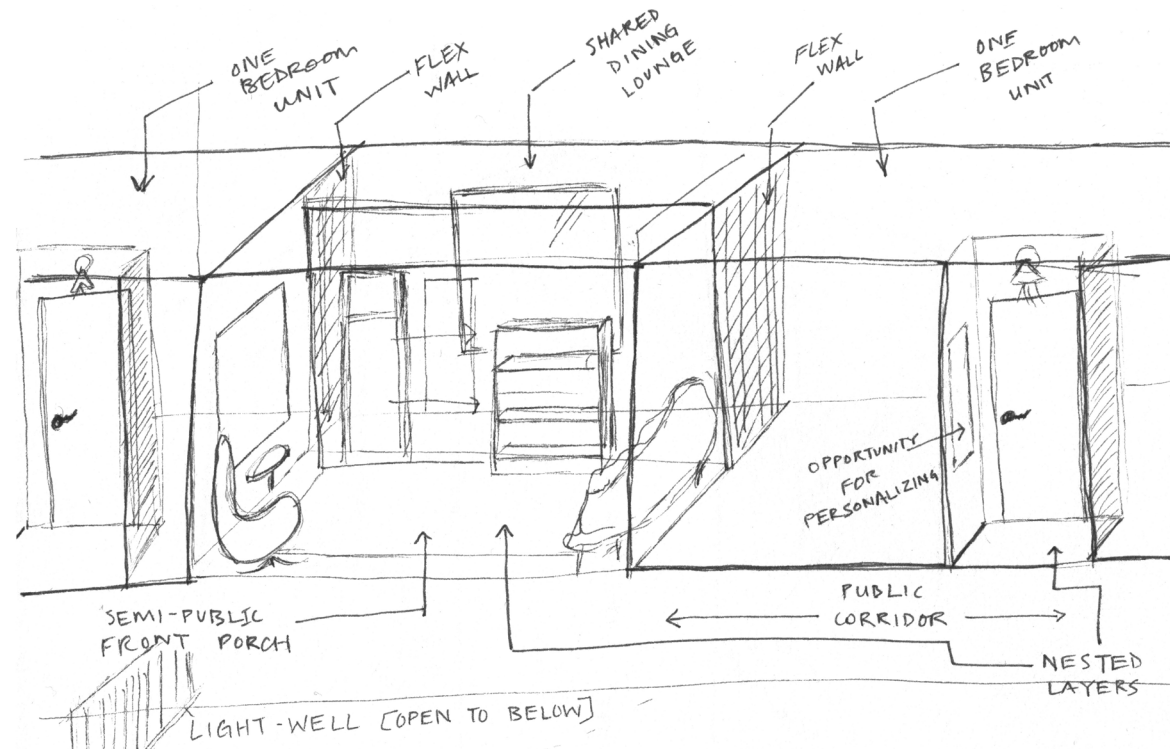 ONE
BEDROOM
UNIT
FLEX
WALL
SHARED
DINING
LOUNGE
FLEX
WALL
ONE
BEDROOM
UNIT
OPPORTUNITY
FOR
PERSONALIZING
SEMI-PUBLIC
FRONT PORCH
PUBLIC
CORRIDOR
NESTED
LAYERS
LIGHT-WELL [OPEN TO BELOW]